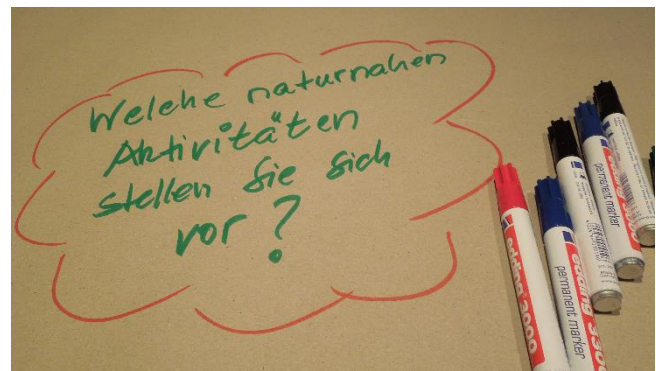 Welche naturnahen
Aktivitäten
stellen Sie sich
vor?
edding 3000
permanent marker
edding 330
permanent marker
edding 3000